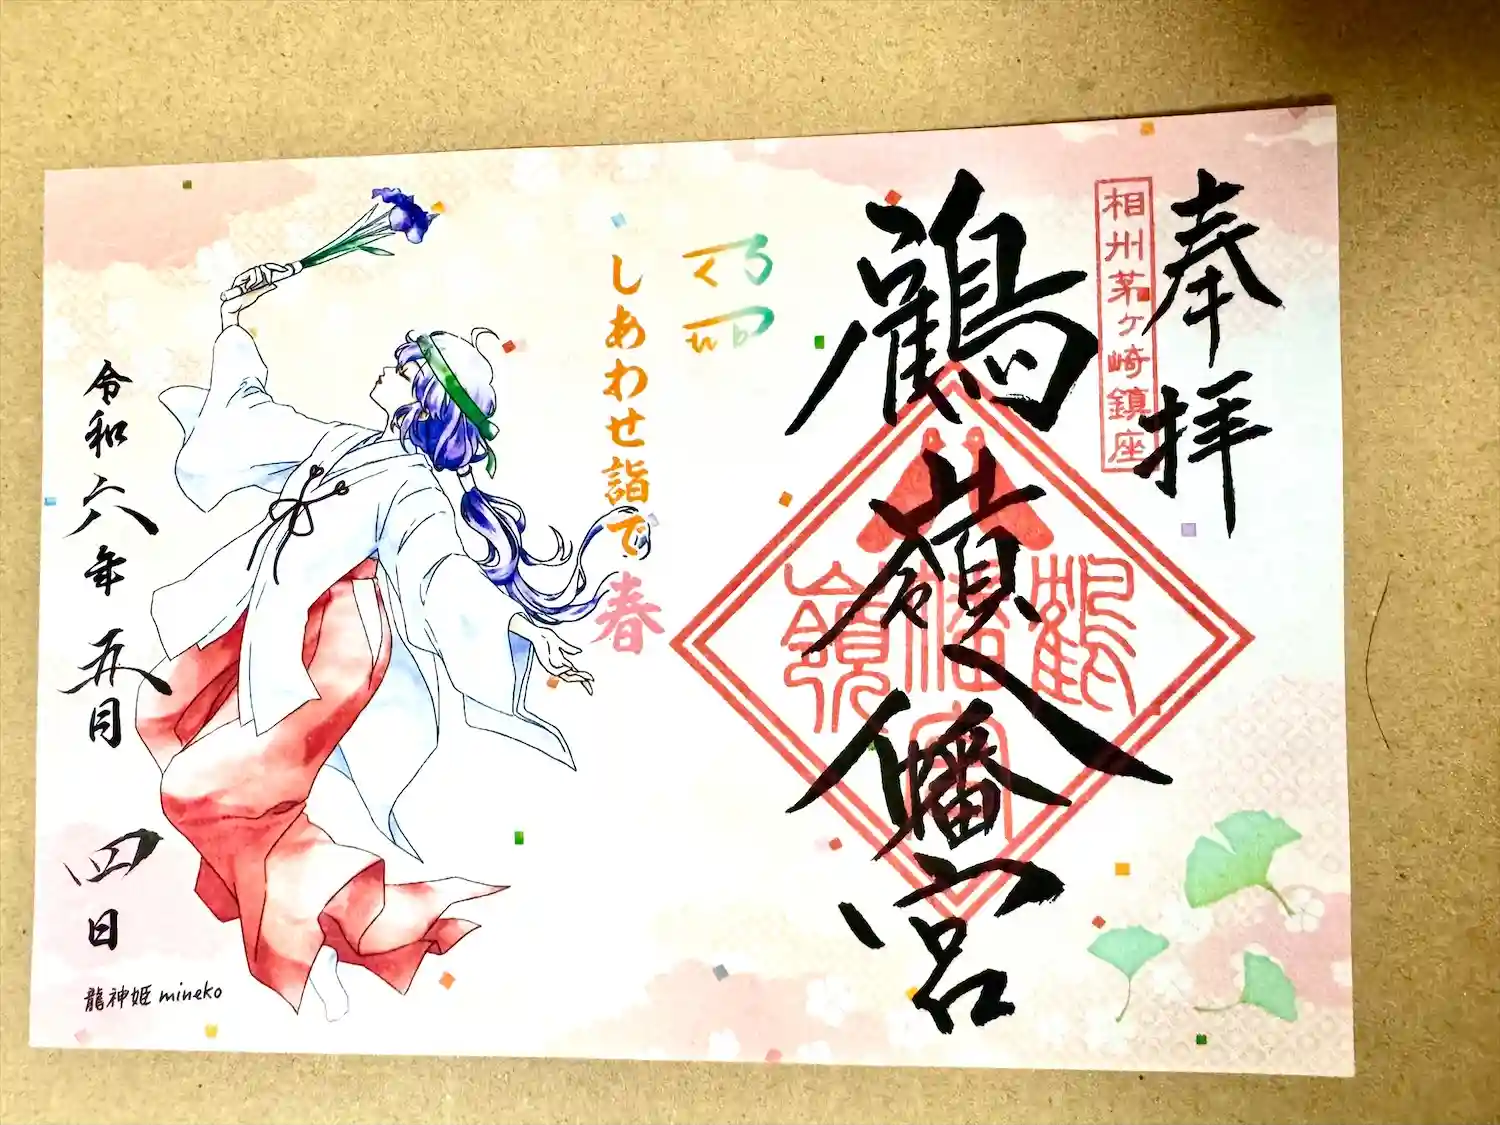 奉拝
相州茅ヶ崎鎮座
鶴嶺八幡宮
鶴嶺八幡宮
しあわせ詣で春
令和六年五月四日
龍神姫 mineko